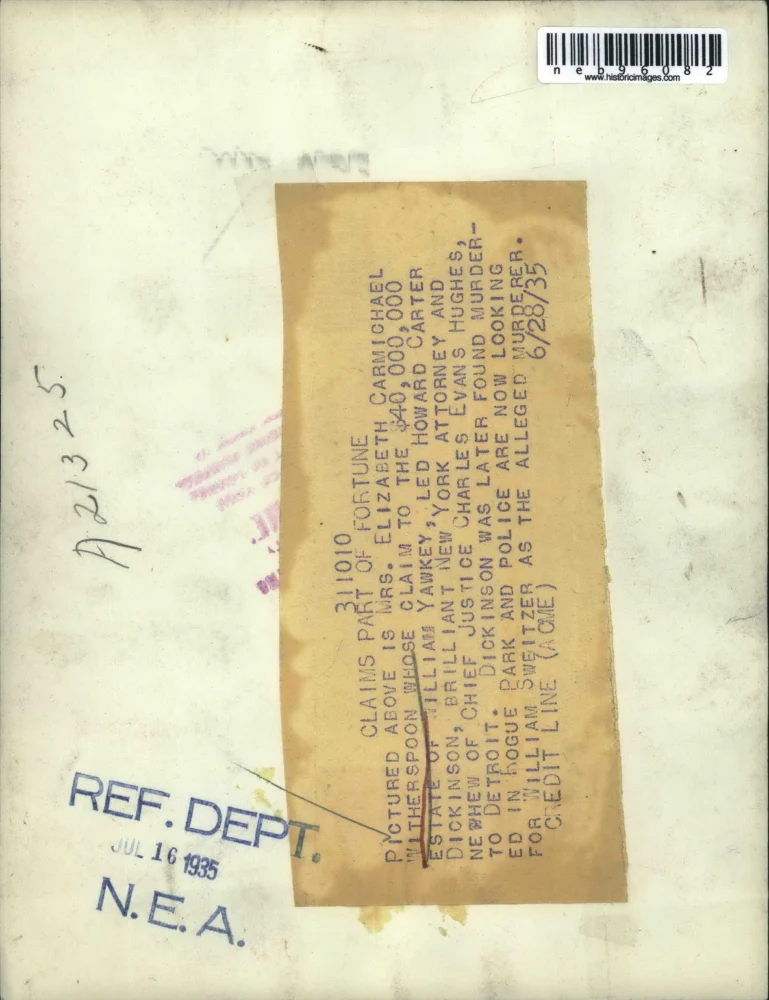 neb96082
www.historicimages.com
A 21325
311010
CLAIMS PART OF FORTUNE
PICTURED ABOVE IS MRS. ELIZABETH CARMICHAEL
WITHERSPOON WHOSE CLAIM TO THE $40,000,000
ESTATE OF WILLIAM YAWKEY, LED HOWARD CARTER
DICKINSON, BRILLIANT NEW YORK ATTORNEY AND
NEPHEW OF CHIEF JUSTICE CHARLES EVANS HUGHES,
TO DETROIT. DICKINSON WAS LATER FOUND MURDER-
ED IN ROGUE PARK AND POLICE ARE NOW LOOKING
FOR WILLIAM SWEITZER AS THE ALLEGED MURDERER.
CREDIT LINE (ACME) 6/28/35
REF. DEPT.
JUL 16 1935
N.E.A.